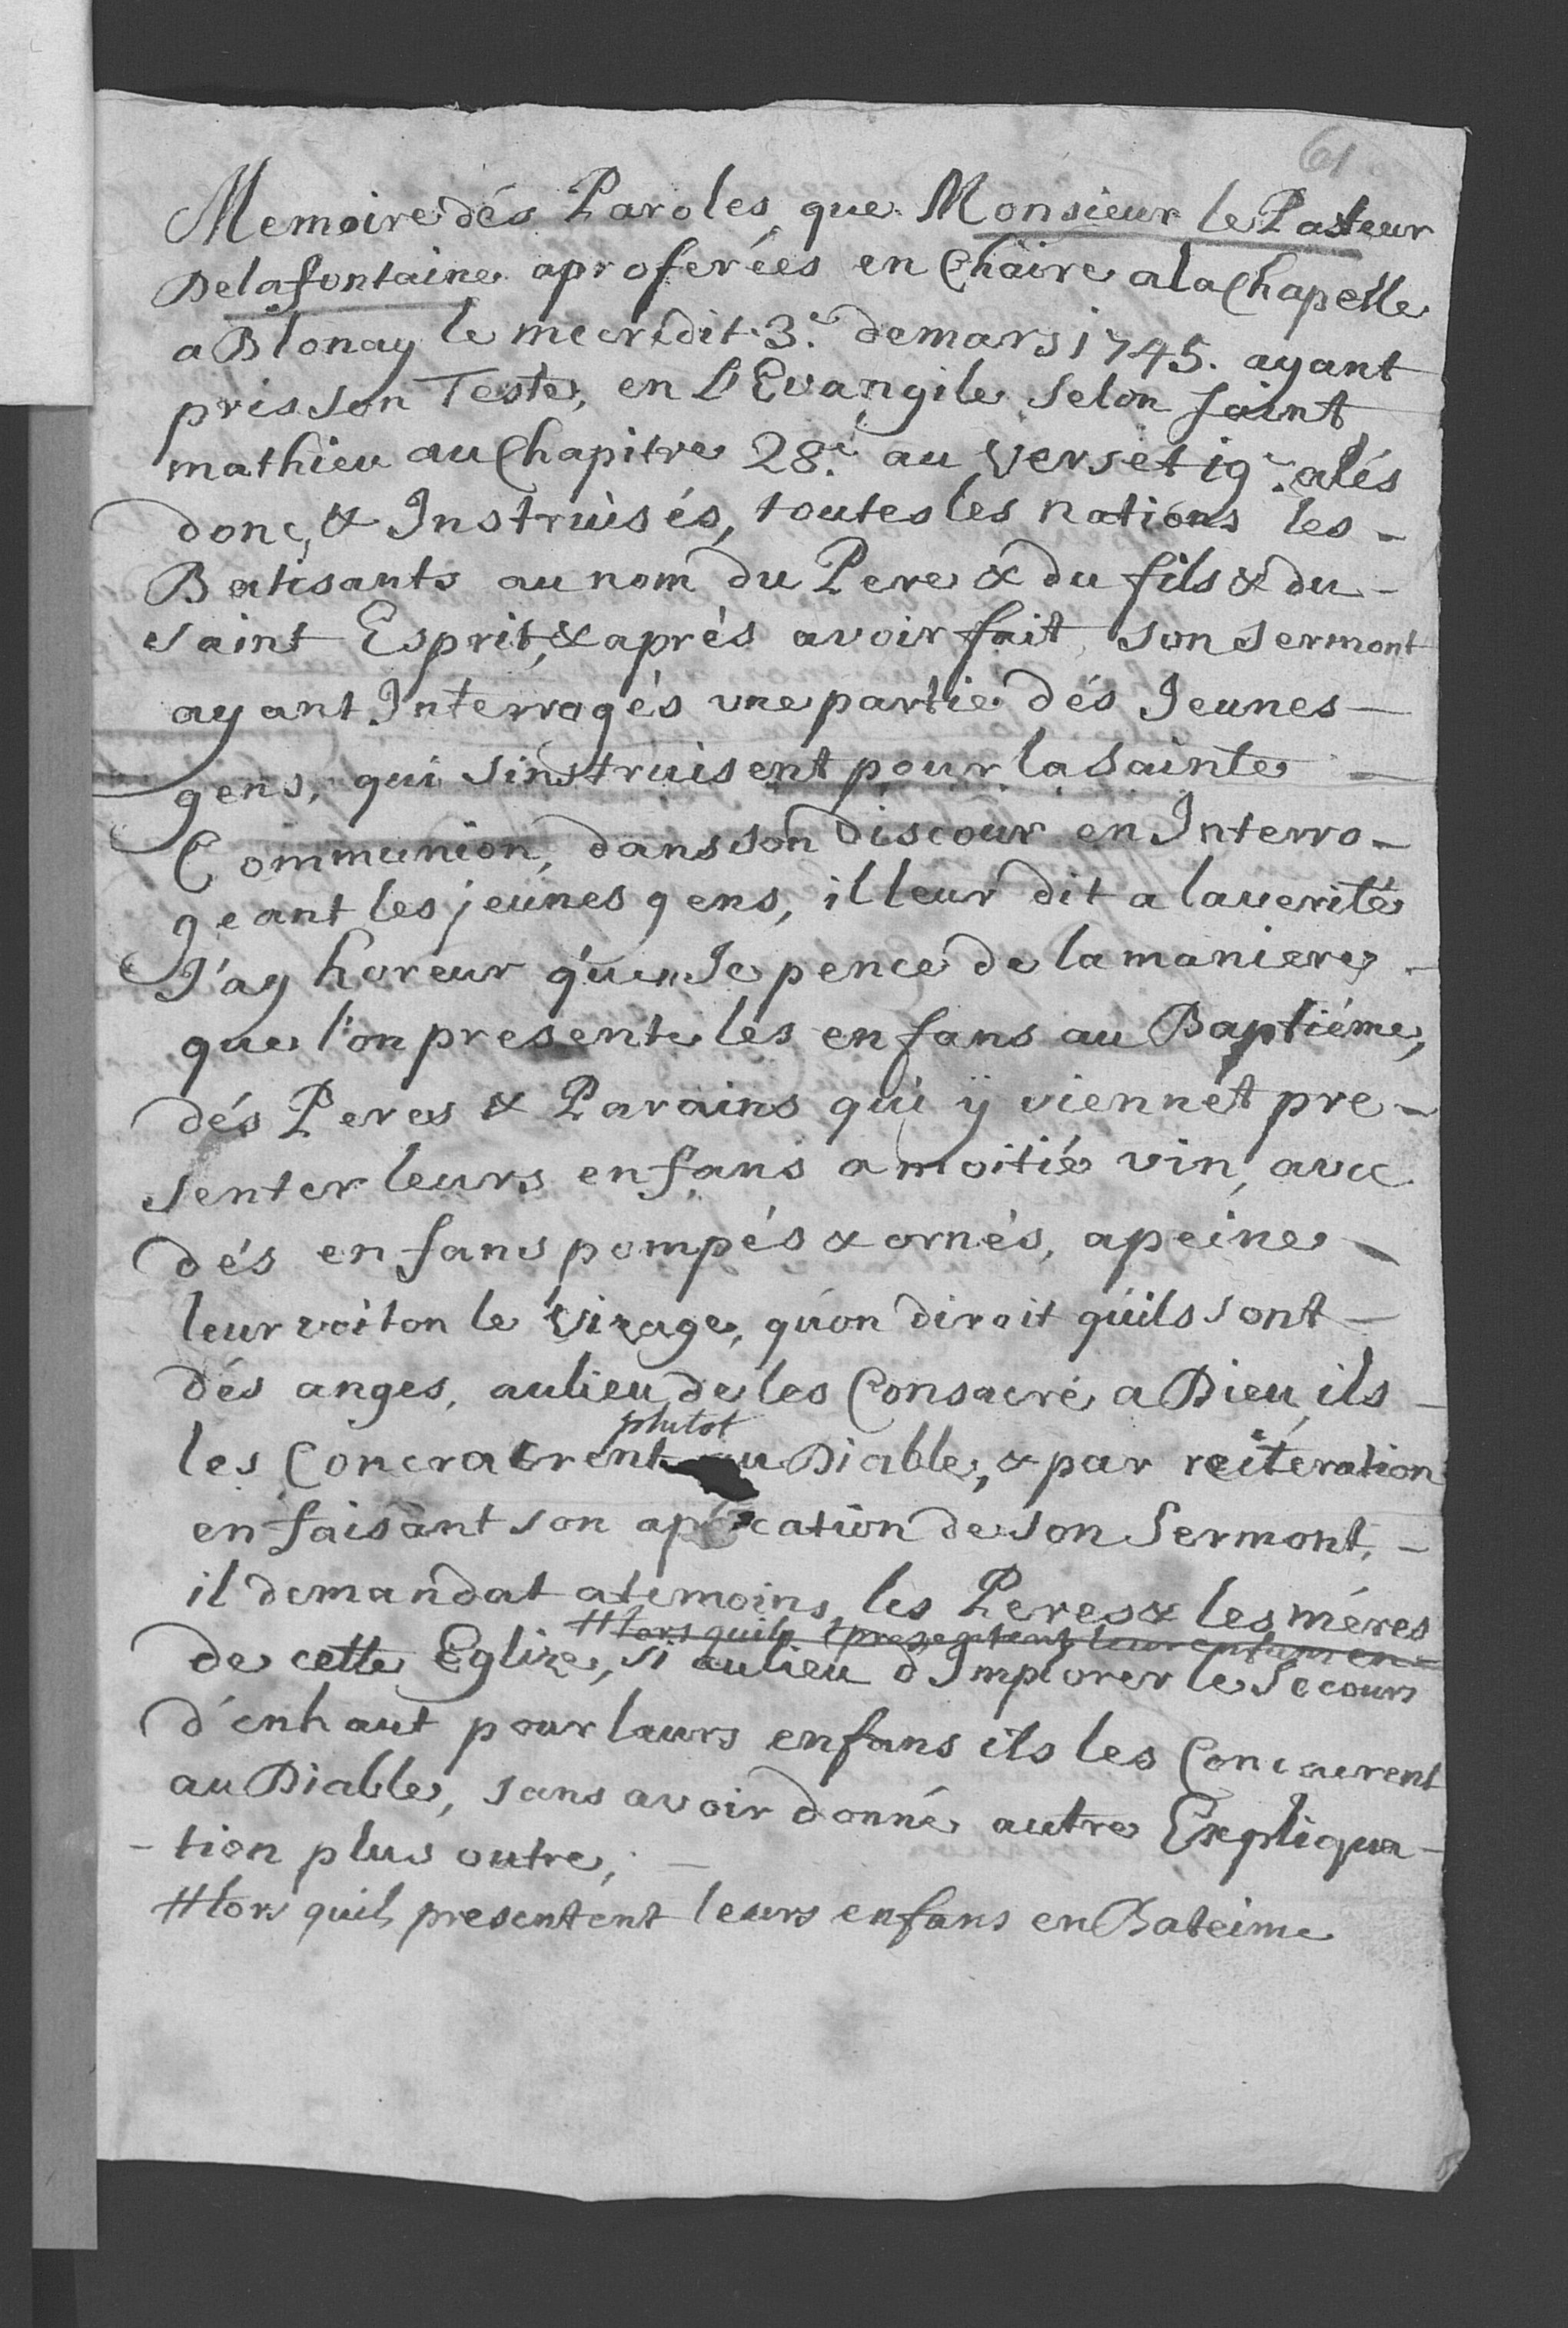 61
Memoire dés Paroles que Monsieur le Pasteur
Delafontaine aproferées en Chäire ala Chapelle
a Blonay le mecredit 3.e de mars 1745. ayant
pris son Teste, en L'Evangile selon saint
mathieu au Chapitre 28.e au verset 19.e alés
donc, & Instruisés, toutes les nations les -
Batisants au nom du Pere & du fils & du -
saint Esprit, & aprés avoir fait son sermont
ayant Interrogés une partie dés Jeunes -
gens, qui s'instruisent pour la Sainte -
Communion, dans son discour en Interro -
geant les jeunes gens, il leur dit a la verité
J'ay horeur que Je pence de la maniere -
que l'on presente les enfans au Baptiéme,
dés Peres & Parains qui ÿ viennet pre -
senter leurs enfans a moitié vin, avec
dés enfans pompés & ornés, apeine -
leur voiton le vizage, qu'on diroit quils sont -
dés anges, aulieu de les Consacré a Dieu, ils -
plutot
les Concracrent au Diable, & par reiteration
en faisant son aplication de son Sermont, -
il demandat a temoins, les Peres & les méres
# lors quils presentent leur enfans en
de cette Eglize, si aulieu d'Implorer le Secours
d'enhaut pour leurs enfans ils les Concacrent
au Diable, sans avoir donné autre Expliqua -
- tion plus outre, -
# lors quils presentent leurs enfans en Bateime